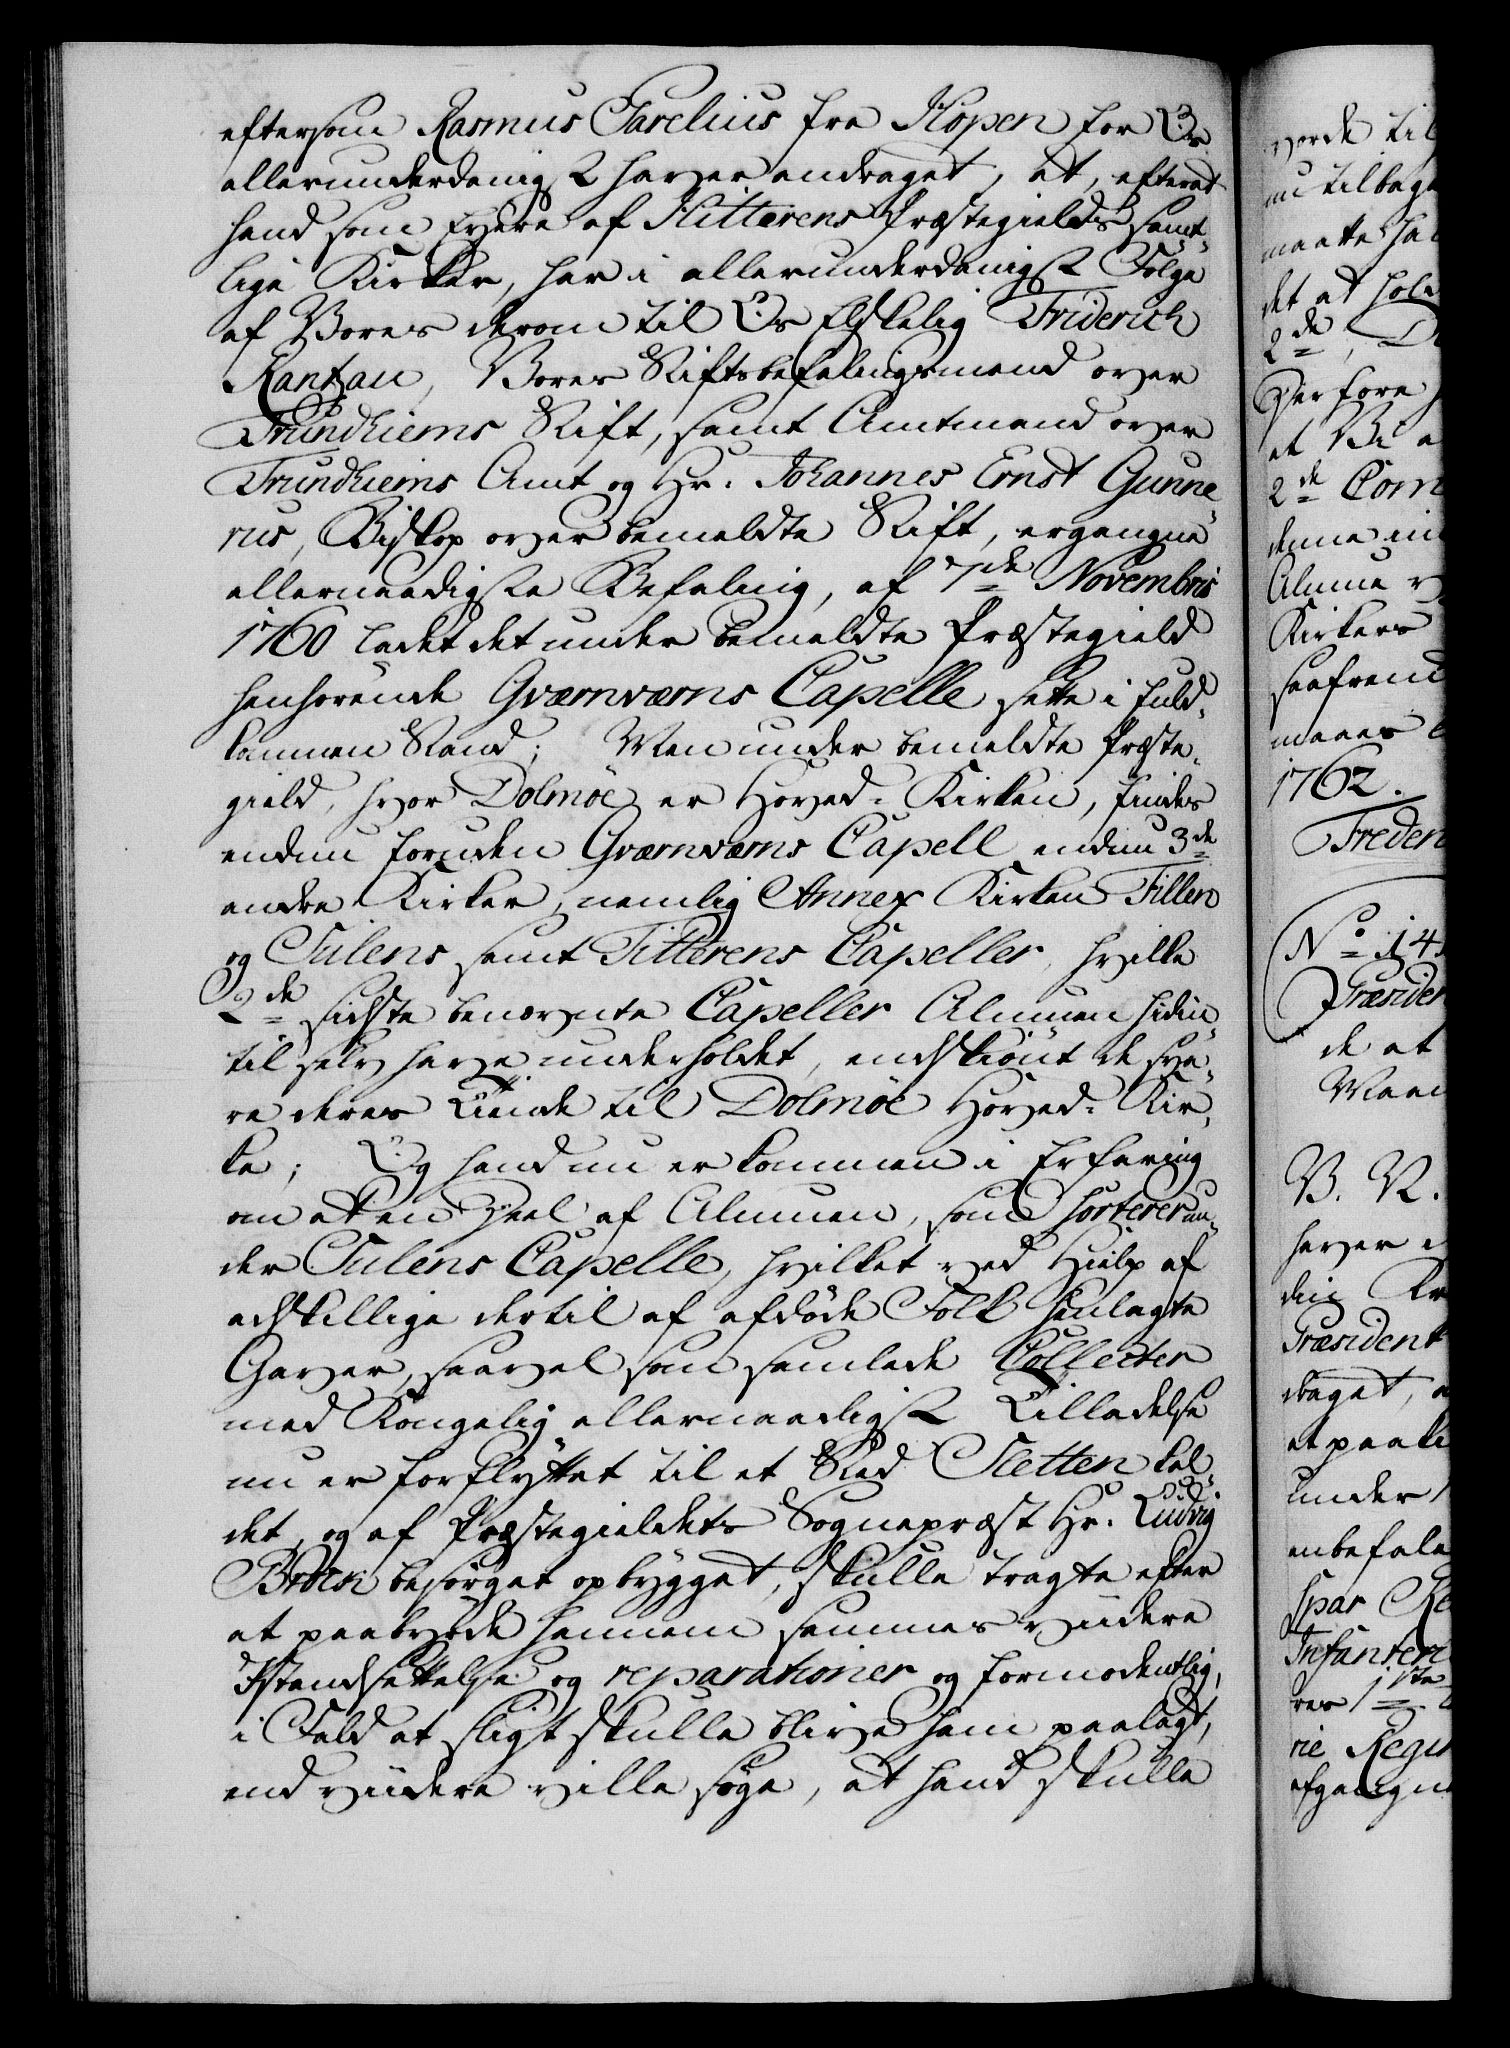 eftersom Rasmus Parelius fra Hopen for Os
allerunderdanigst haver andraget, at, efterat
hand som Eyere af Hitterens Præstegields samt-
lige Kirker, har i allerunderdanigst Følge
af Vores derom til Os Elskelig Friderich
Rantzau, Vores Stiftsbefalingsmand over
Trundhiems Stift, samt Amtmand over
Trundhiems Amt og Hr. Johannes Ernst Gunne-
rus, Biskop over bemeldte Stift, ergangne
allernaadigste Befaling, af 7de Novembris
1760 ladet det under bemeldte Præstegield
henhörende Gværnværns Capelle sætte i fuld-
kommen Stand; Men under bemeldte Præste-
gield, hvor Dolmöe er Hoved-Kirken, findes
endnu foruden Gværnværns Capell endnu 3de
andre Kirker, nemlig Annex Kirken Fillen
og Sulens samt Titterens Capeller, hvilke
2de sidste benævnte Capeller Almuen hidin-
til selv have underholdet, endskiönt de sva-
re deres Tiinde til Dolmöe Hoved-Kir-
ke; Og hand nu er kommen i Erfaring
om at en Deel af Almuen, som sorterer un-
der Sulens Capelle, hvilket ved Hielp af
adskillige dertil af afdöde Folk henlagte
Gaver, saavel som samlede Collecter
med Kongelig allernaadigst Tilladelse
nu er forflyttet til et Sted Sletten kal-
det, og af Præstegieldets Sognepræst Hr. Ludvig
Brock besörget opbygget, skulle tragte efter
at paabyrde hannem sammes viidere
Istandsættelse og reparationer og formodentlig,
i Fald at sligt skulle blive ham paalagt,
end viidere ville söge, at hand skulle